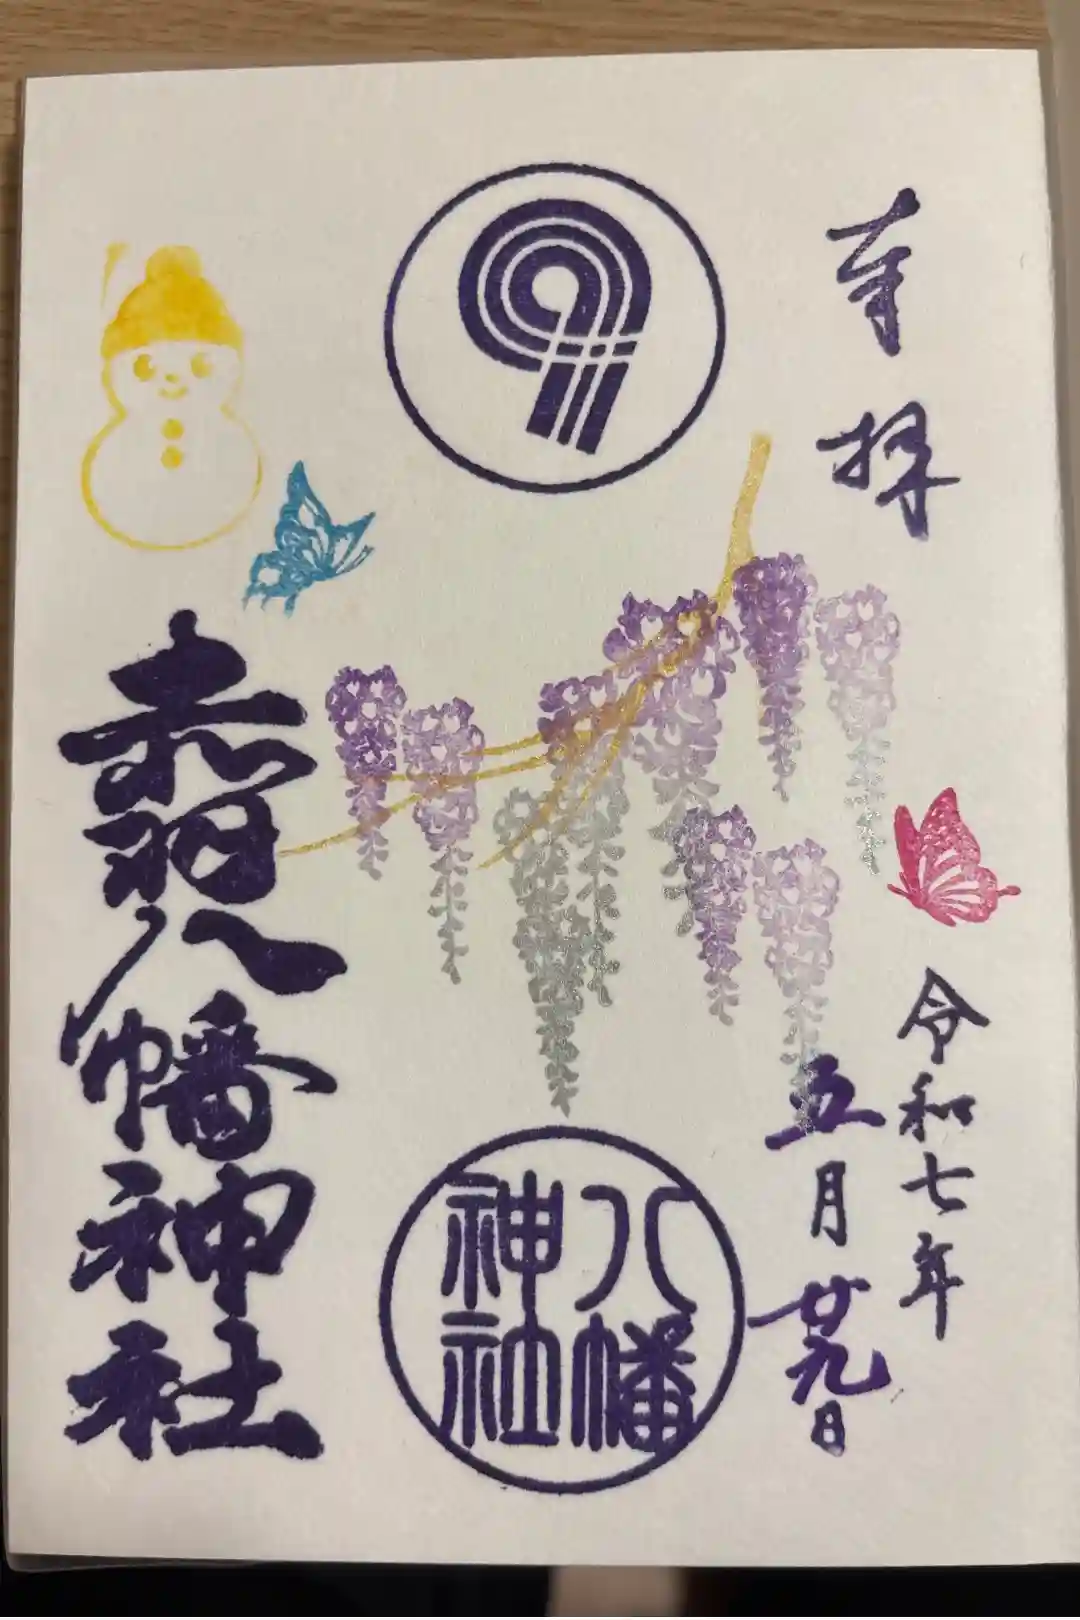 奉拝
令和七年
五月廿九日
9
八幡
神社
赤羽八幡神社